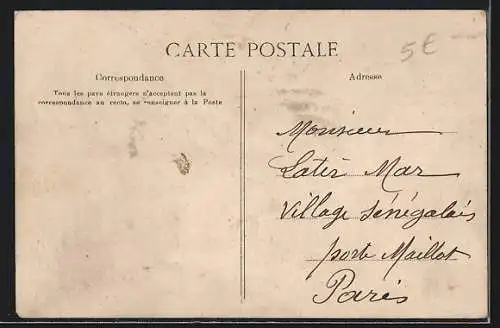 CARTE POSTALE
5€
Correspondance
Adresse
Tous les pays étrangers n'acceptent pas la
correspondance au recto, se renseigner à la Poste
Monsieur
Latir Mar
Village Sénégalais
porte Maillot
Paris